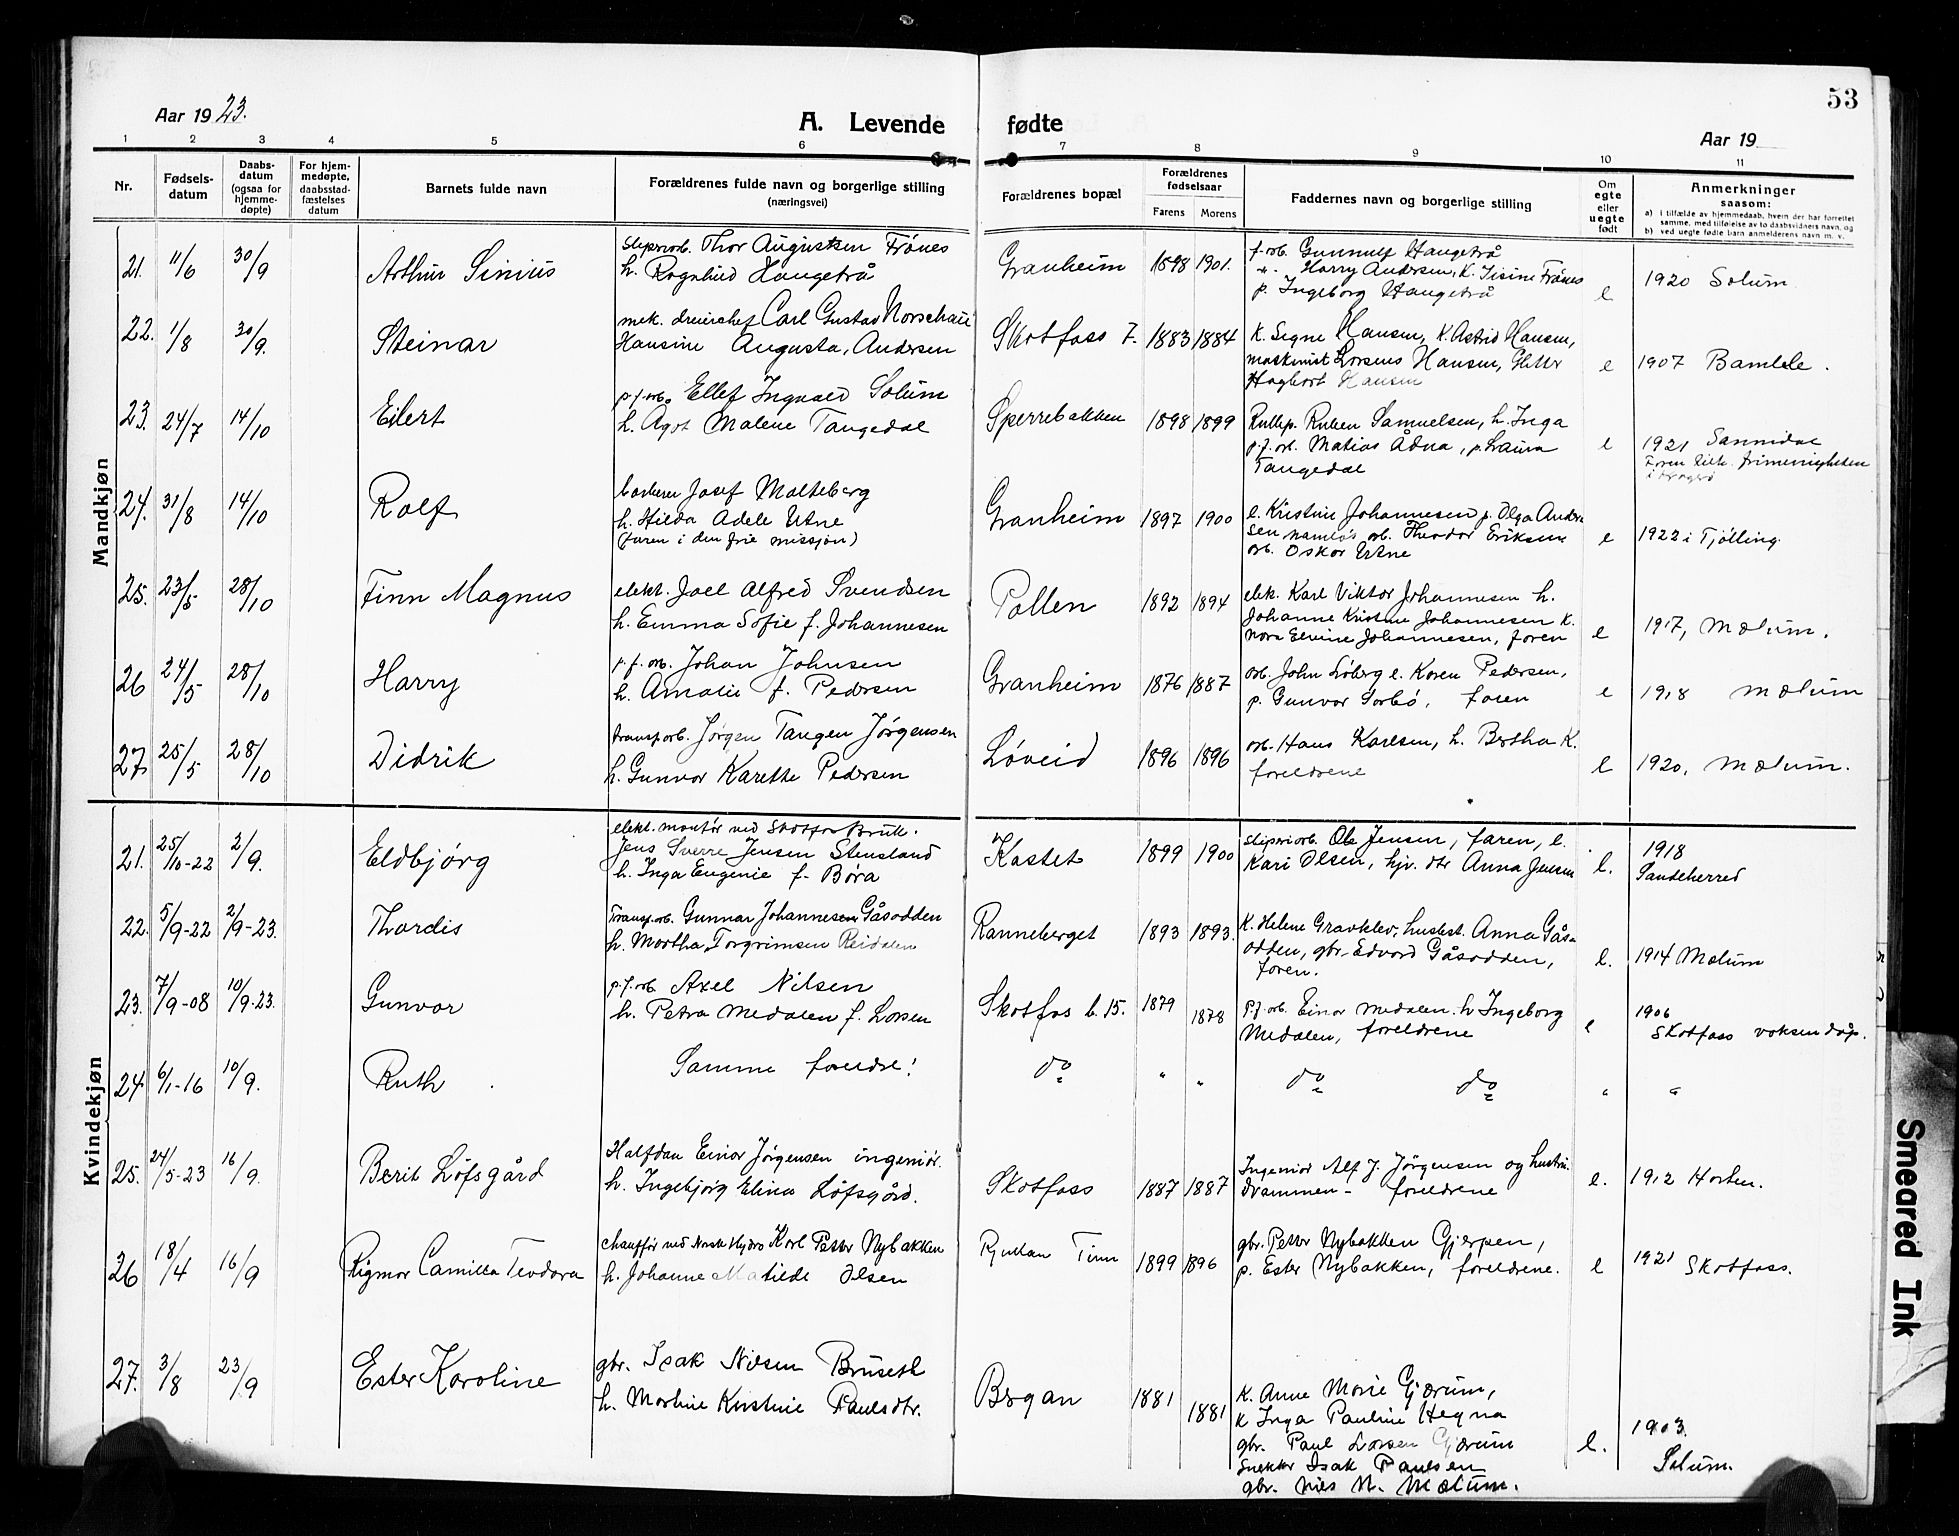 53
Aar 1923.
A. Levende fødte
Aar 19
1 2 3 4 5 6 7 8 9 10 11
Nr.
Fødsels-
datum
Daabs-
datum
(ogsaa for
hjemme-
døpte)
For hjem-
medøpte,
daabsstad-
fæstelses
datum
Barnets fulde navn
Forældrenes fulde navn og borgerlige stilling
(næringsvei)
Forældrenes bopæl
Forældrenes
fødselsaar
Farens Morens
Faddernes navn og borgerlige stilling
Om
egte
eller
uegte
født
Anmerkninger
saasom:
a) i tilfælde av hjemmedaab, hvem der har forrettet
samme, med tilføielse av to daabsvidners navn, og
b) ved uegte fødte barn anmelderens navn m. v.
Mandkjøn
21. 11/6 30/9 Arthur Sinius
Thor Augustsen Frönes
h. Ragnhild Haugetrå
Granheim 1898 1901.
f. arb. Gunnulf Haugetrå
Harry Andersen, K. Frönes
p. Ingeborg Haugetrå
e 1920 Solum
22. 1/8 30/9. Steinar
mek. Carl Gustav
Hansine Augusta, Andersen
Skotfoss 7. 1883 1884
K. Signe Hansen, K. Astrid Hansen,
maskinist Lorens Hansen,
Hagbart Hansen
e 1907 Bamble.
23. 24/7 14/10 Eilert
p.f.arb. Ellef Ingvald Solum
h. Agot Malene Tangedal
Sperrebakken 1898 1899
Ruben Samuelsen, h. Inga
p.f. arb. Matias Ådna, p. Laura
Tangedal
e 1921 Sannidal
24. 31/8 14/10 Rolf
barberer Josef Molteberg
h. Hilda Adele Utne
(faren i den frie missjon)
Granheim 1897 1900
e. Kristine Johannesen p. Olga Ander
sen arb. Theodor Eriksen
arb. Oskar Utne
e 1922 i Tjölling.
25. 23/5 28/10 Finn Magnus
elekt. Joel Alfred Svendsen
h. Emma Sofie f. Johannesen
Pollen 1892 1894
elek. Karl Viktor Johannesen h.
Johanne Kristine Johannesen K.
Nora Johannesen, faren
e 1917, Mælum.
26 24/5 28/10 Harry
p.f. arb. Johan Johnsen
h. Amalie f. Pedersen
Granheim 1876 1887
arb. John Löberg e. Karen Pedersen,
p. Gunvor Sorbö, faren
e 1918 Mælum
27. 25/5 28/10 Didrik
transp.arb. Jørgen Tangen Jørgensen
h. Gunvor Karethe Pedersen
Løveid 1896 1896
arb. Hans Karlsen, h. Bertha K.
foreldrene
e 1920. Mælum.
Kvindekjøn
21. 25/10-22 2/9. Eldbjørg
elekt. montör ved Skotfos Bruk.
Jens Sverre Jensen Stensland
h. Inga Eugenie f. Børa
Kastet 1899 1900
sliperiarb. Ole Jensen, faren, e.
Kari Olsen, hjv. dtr Anna Jensen
e. 1918
Sandeherred
22. 5/9-22 2/9-23. Thordis
Transp.arb. Gunnar Johannesen Gåsodden
h. Martha Torgrimsen Reidalen
Ranneberget 1893 1893.
K. Helene Gravklev, husbest. Anna Gås-
odden, gbr. Edvard Gåsodden,
foren.
e. 1914 Mælum
23. 7/9-08 10/9-23. Gunvor
p.f. arb Axel Nilsen
h. Petra Medalen f. Larsen
Skotfos b. 15. 1879 1878
p.f. arb. Einar Medalen. h Ingeborg
Medalen, foreldrene
e 1906
Skotfoss voksendåp.
24. 6/1-16 10/9. Ruth
Samme foreldre!
do " " do do " "
25. 24/5-23 16/9. Berit Løfsgård
Halfdan Einar Jørgensen ingeniør.
h. Ingebjørg Elina Løfsgård.
Skotfoss 1887 1887
Ingeniør Alf J. Jørgensen og hustru.
Drammen - foreldrene
e. 1912 Horten.
26 18/4 16/9 Rigmor Camilla Teodora
chauffør ved Norsk Hydro Karl Petter Nybakken
h. Johanne Matilde Olsen
Rjukan Tinn 1899 1896
gbr. Petter Nybakken Gjerpen,
p. Ester Nybakken, foreldrene.
e 1921 Skotfoss.
27. 3/8 23/9 Ester Karoline
gbr. Isak Nilsen Bruseth
h. Martine Kristine Paulsdtr.
Bergan 1881 1881
K. Anne Marie Gjærum,
K Inga Pauline Hegna
gbr. Paul Larsen Gjærum
Snekker Isak Paulsen
gbr. Nils N. Mælum.
e. 1903.
Solum.
Smeared Ink